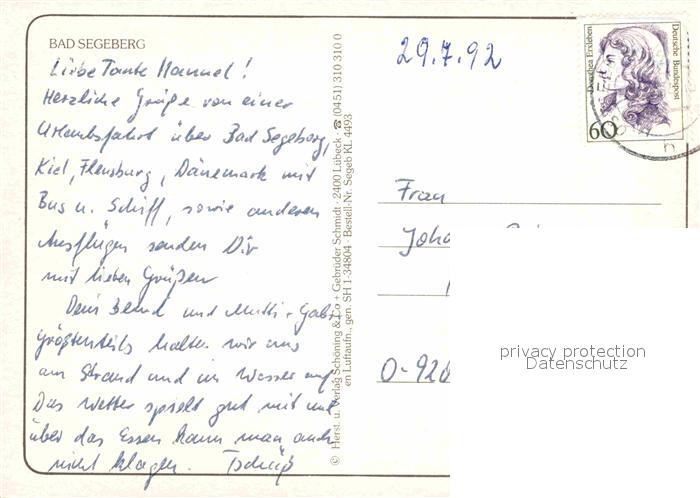 BAD SEGEBERG
Liebe Tante Hannel!
Herzliche Grüße von einer
Urlaubsfahrt über Bad Segeberg,
Kiel, Flensburg, Dänemark mit
Bus u. Schiff, sowie anderen
Ausflügen senden Dir
mit lieben Grüßen
Dein Bernd und Mutti + Gabi
größtenteils halten wir uns
am Strand und im Wasser auf
Das Wetter spielt gut mit und
über das Essen kann man auch
nicht klagen. Tschüß
© Herst. u. Verlag Schöning & Co + Gebrüder Schmidt · 2400 Lübeck · ☎ (0451) 310 310 0
en Luftaufn., gen. SH 1-34804 · Bestell-Nr. Segeb KL 4493
29.7.92
Dorothea Erxleben
Deutsche Bundespost
60
Frau
Joha
O-920
privacy protection
Datenschutz